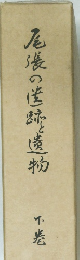 尾張の遺跡と遺物
下巻